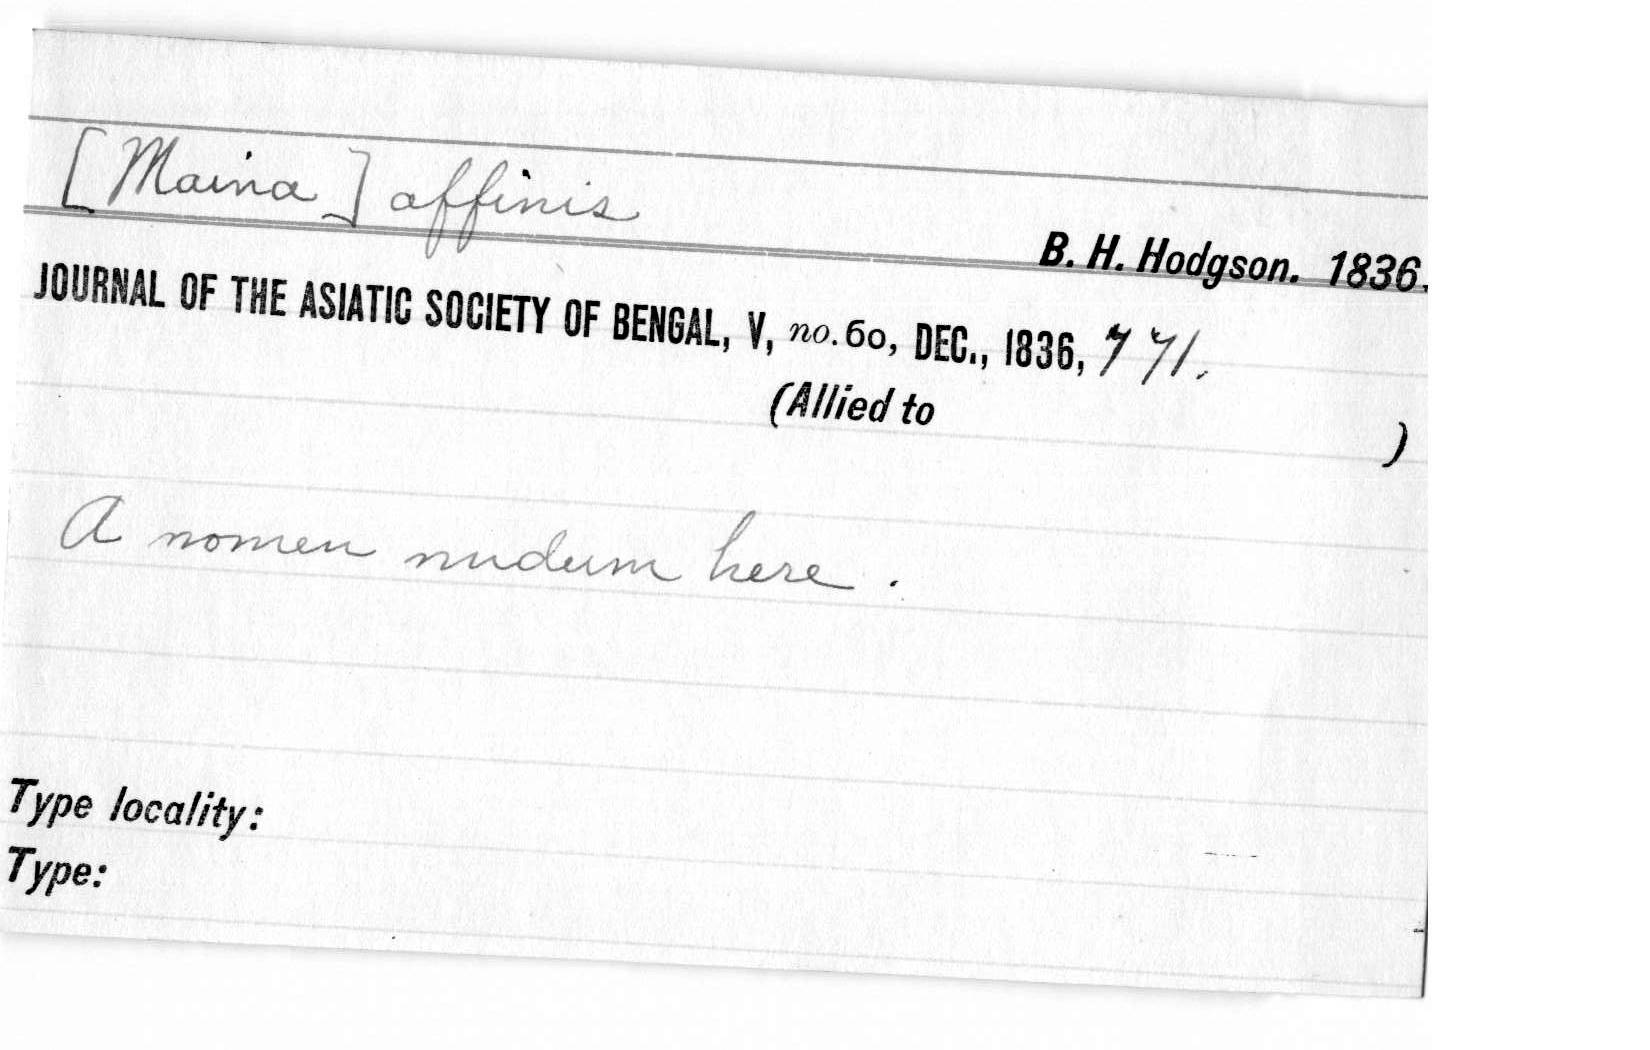 [Maina] affinis
B. H. Hodgson. 1836.
JOURNAL OF THE ASIATIC SOCIETY OF BENGAL, V, no. 60, DEC., 1836, 771.
(Allied to )
A nomen nudum here.
Type locality:
Type: